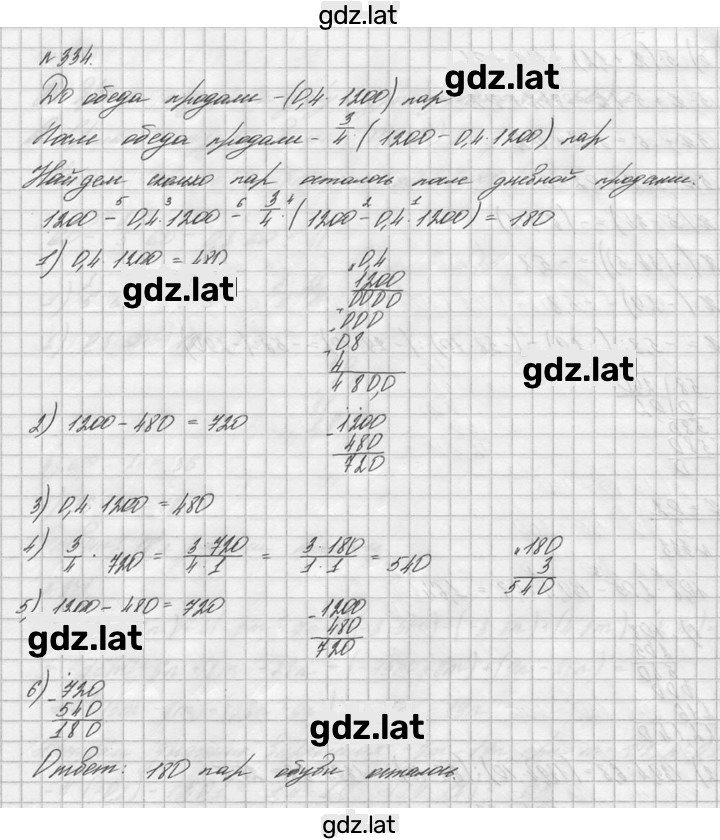 gdz.lat
№334.
До обеда продали - (0,4 · 1200) пар
gdz.lat
После обеда продали - 3/4 · (1200 - 0,4 · 1200) пар
Найдем сколько пар осталось после дневной продажи:
1200 -⁵ 0,4 ·³ 1200 -⁶ 3/4 ·⁴ (1200 -² 0,4 ·¹ 1200) = 180
1) 0,4 · 1200 = 480
× 0,4
1200
+ 0000
+ 000
+ 08
4
480,0
gdz.lat
gdz.lat
2) 1200 - 480 = 720
- 1200
480
720
3) 0,4 · 1200 = 480
4) 3/4 · 720 = 3·720/4·1 = 3·180/1·1 = 540
× 180
3
540
5) 1200 - 480 = 720
- 1200
480
720
gdz.lat
6) - 720
540
180
gdz.lat
Ответ: 180 пар обуви осталось.
gdz.lat